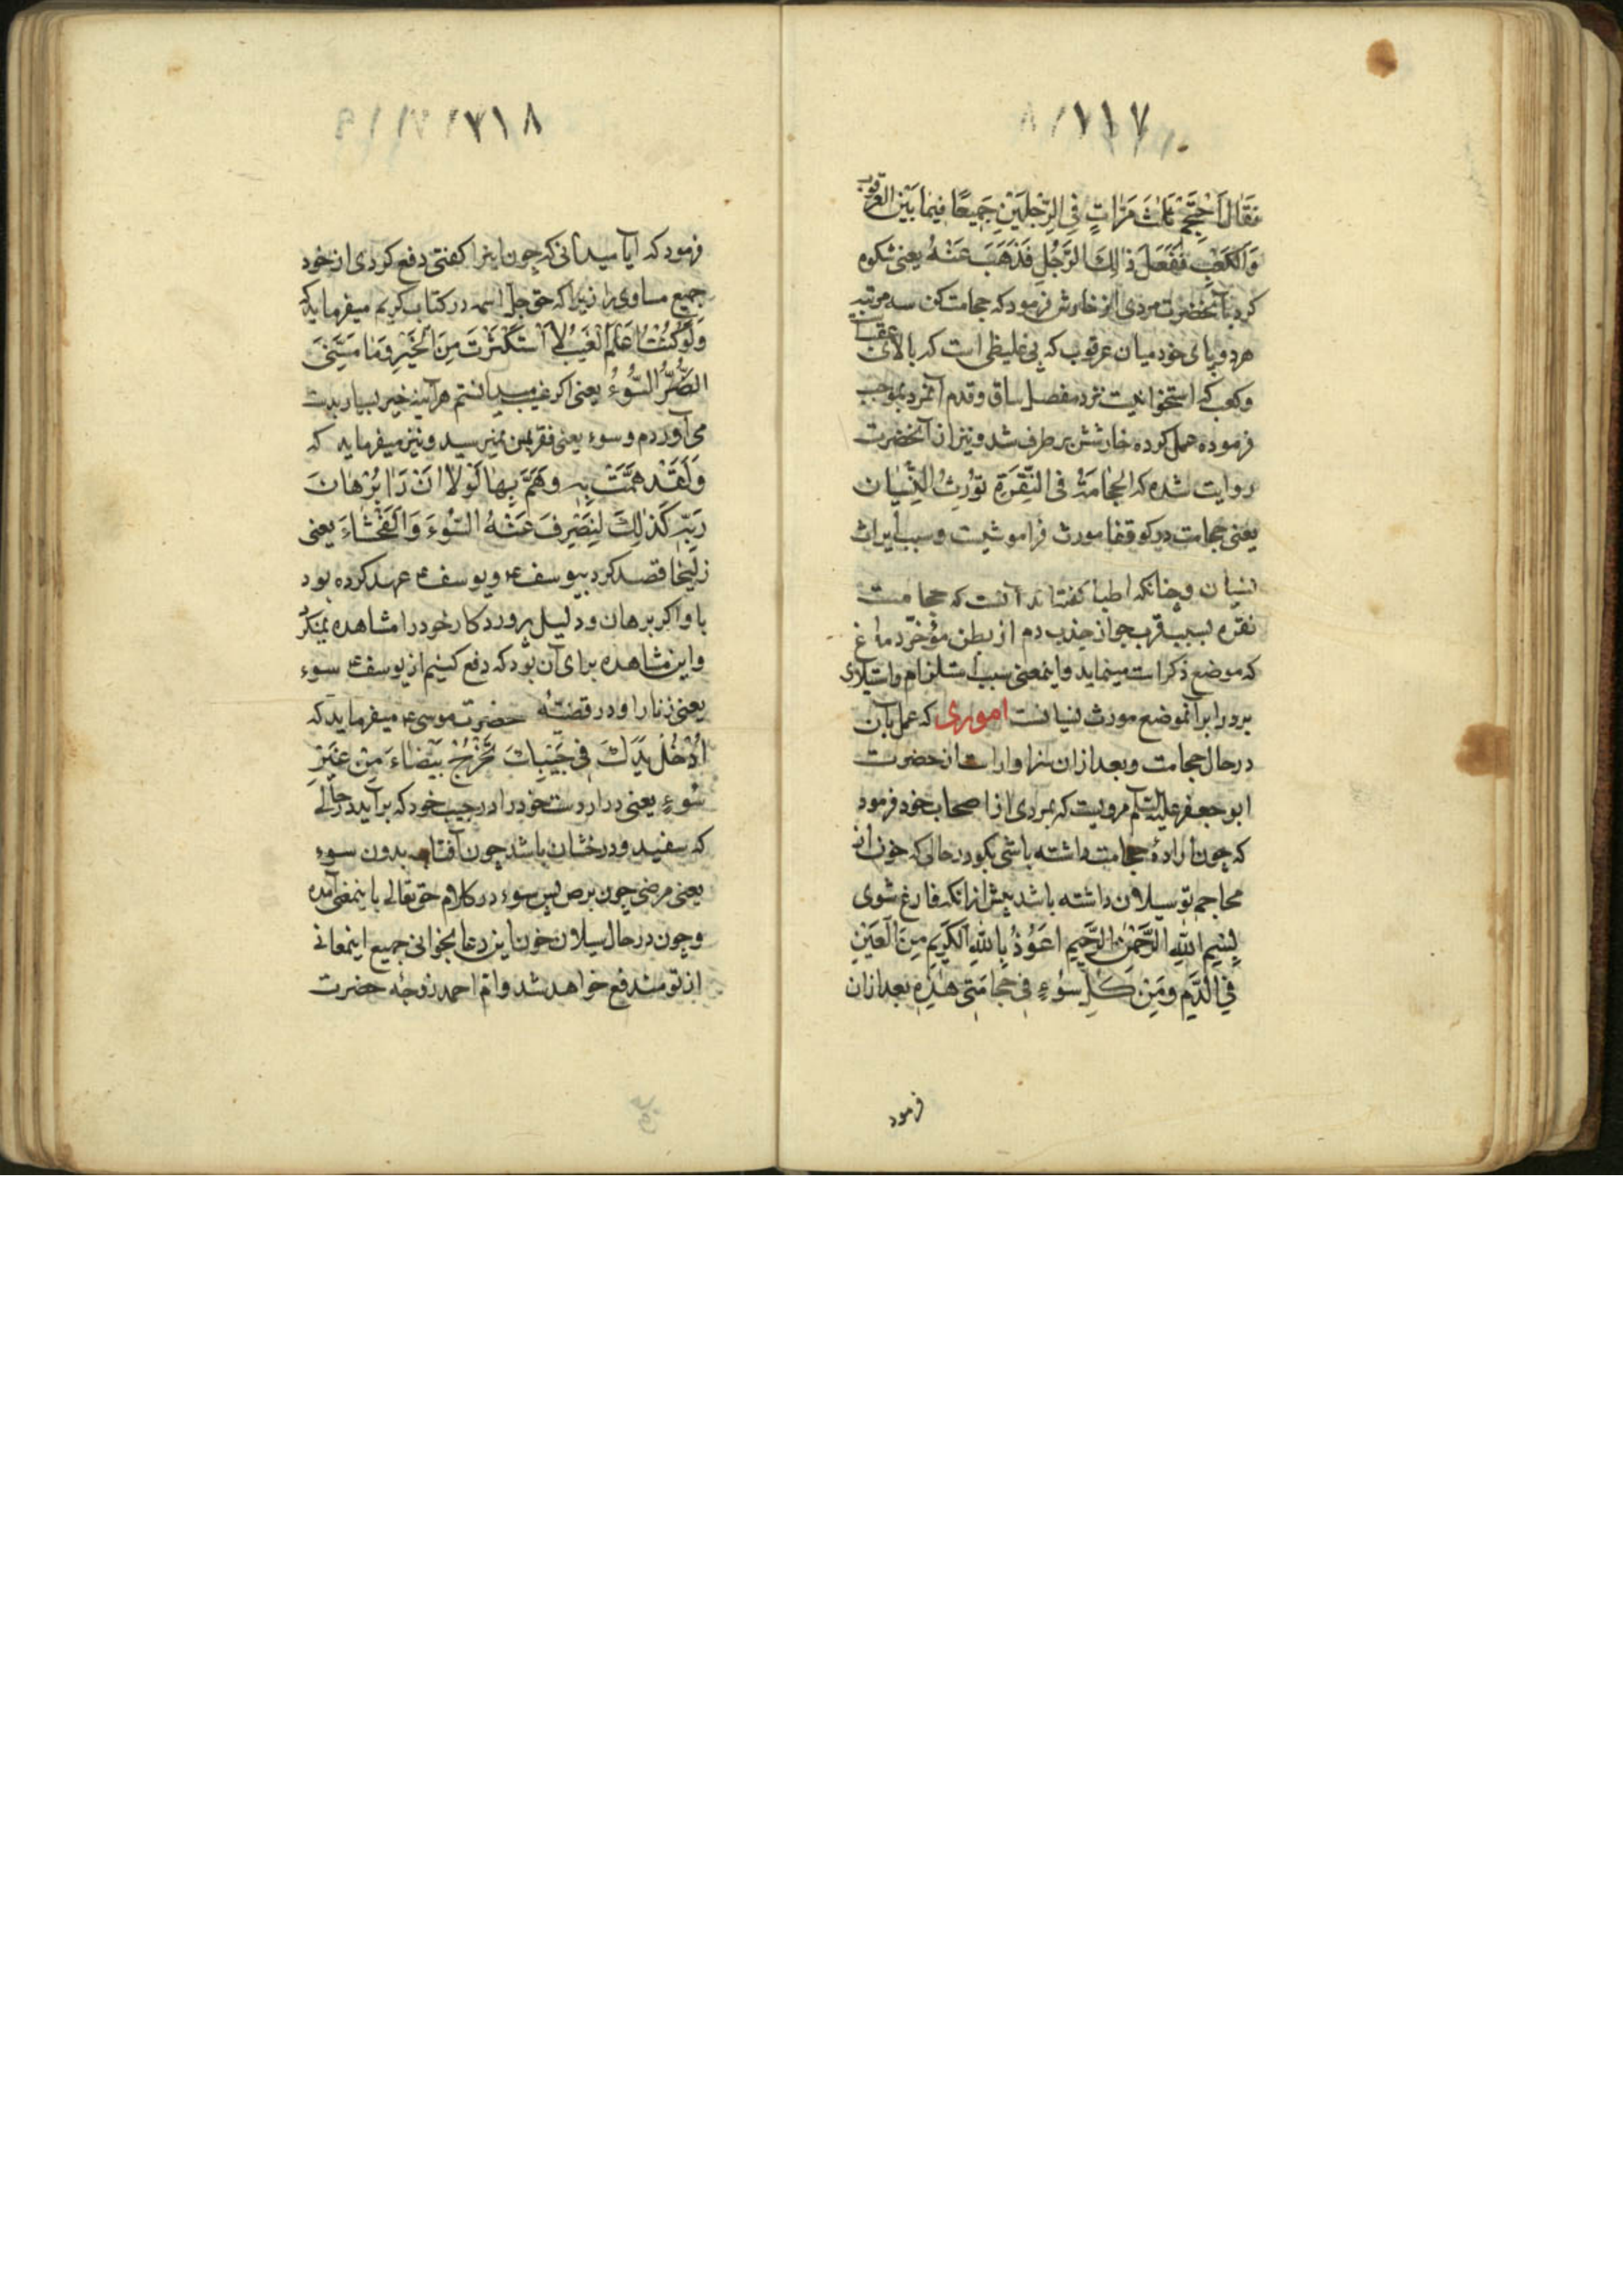 ۷۱۷
فَقَالَ اَحْتَجِمْ ثَلٰثَ مَرّاتٍ فِی الرِّجْلَیْنِ جَمیعًا فیما بَیْنَ العرقوب
وَالْکَعْبِ فَفَعَلَ ذٰالِکَ الرَّجُلِ فَذَهَبَ عَنْهُ یعنی شکوه
کرد بآنحضرت مردی از خارش فرمود که حجامت کن سه مرتبه
هر دو پای خود میان عرقوب که پی غلیظی است که بالای عقب است
وکعب که استخوانیست نزد مفصل ساق و قدم آنمرد بموجب
فرموده عمل کرده خارشش برطرف شد و نیز از آنحضرت
روایت شده که الحِجٰامَةُ فی النُّقْرَةِ تُوْرِثُ النِّسْیٰان
یعنی حجامت در کو قفا مورث فراموشیست و سبب ایراث
نسیان و چنانکه اطبا کفته‌اند آنست که حجامت
نقره بسبب قرب جوار جذب دم از بطن مؤخّر دماغ
که موضع ذکر است مینماید و اینمعنی سبب استلزام و استیلای
برد را بر آنموضع مورث نسیانست اموری که عمل بآن
در حال حجامت و بعد از آن سزاوار است از حضرت
ابو جعفر علیه السّلام مرویست که بمردی از اصحاب خود فرمود
که چون ارادهٔ حجامت داشته باشی بکو در حالی که خون از
محاجم تو سیلان داشته باشد پیش از آنکه فارغ شوی
بِسْمِ اللهِ الرَّحْمٰنِ الرَّحیمِ اَعُوْذُ بِاللهِ الکَریمِ مِنَ الْعَیْنِ
فِی الدَّمِ وَمِنْ کُلِّ سُوْءٍ فی حِجٰامَتی هٰذِهِ بعد از آن
فرمود
۷۱۸
فرمود که ایا میدانی که چون اینرا کفتی دفع کردی از خود
جمیع مساوی را زیرا که حق جل اسمه در کتاب کریم میفرماید که
وَلَوْ کُنْتُ اَعْلَمُ الْغَیْبَ لاَ اسْتَکْثَرْتُ مِنَ الْخَیْرِ وَمٰا مَسَّنِیَ
الضُّرُّ السُّوْءُ یعنی اکر غیب میدانستم هر آینه خیر بسیار بدست
می‌آوردم و سوء یعنی فقر بمن نمیرسید و نیز میفرماید که
وَلَقَدْ هَمَّتْ بِهِ وَهَمَّ بِهٰا لَوْلاٰ اَنْ رَاٰ بُرْهٰانَ
رَبِّهِ کَذٰلِکَ لِنَصْرِفَ عَنْهُ السُّوْءَ وَالْفَحْشٰاءَ یعنی
زلیخا قصد کرد بیوسف ع و یوسف ع عهد کرده بود
با و اکر برهان و دلیل پروردکار خود را مشاهده نمیکرد
و این مشاهده برای آن بود که دفع کنیم از یوسف ع سوء
یعنی زنا را و در قصّهٔ حضرت موسی ع میفرماید که
اُدْخُلْ یَدَکَ فی جَیْبِکَ تَخْرُجْ بَیْضٰاءَ مِنْ غَیْرِ
سُوْءٍ یعنی در ار دست خود را در جیب خود که بر آید در حالی
که سفید و درخشان باشد چون آفتاب بدون سوء
یعنی مرضی چون برص پس سوء در کلام حق تعالی باینمعنی آمده
و چون در حال سیلان خون این دعا بخوانی جمیع اینمعانی
از تو مندفع خواهد شد و ام احمد زوجهٔ حضرت